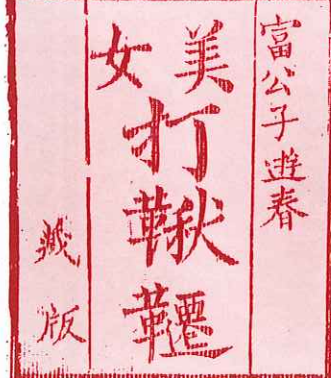 富公子遊春
美女
打鞦韆
藏版